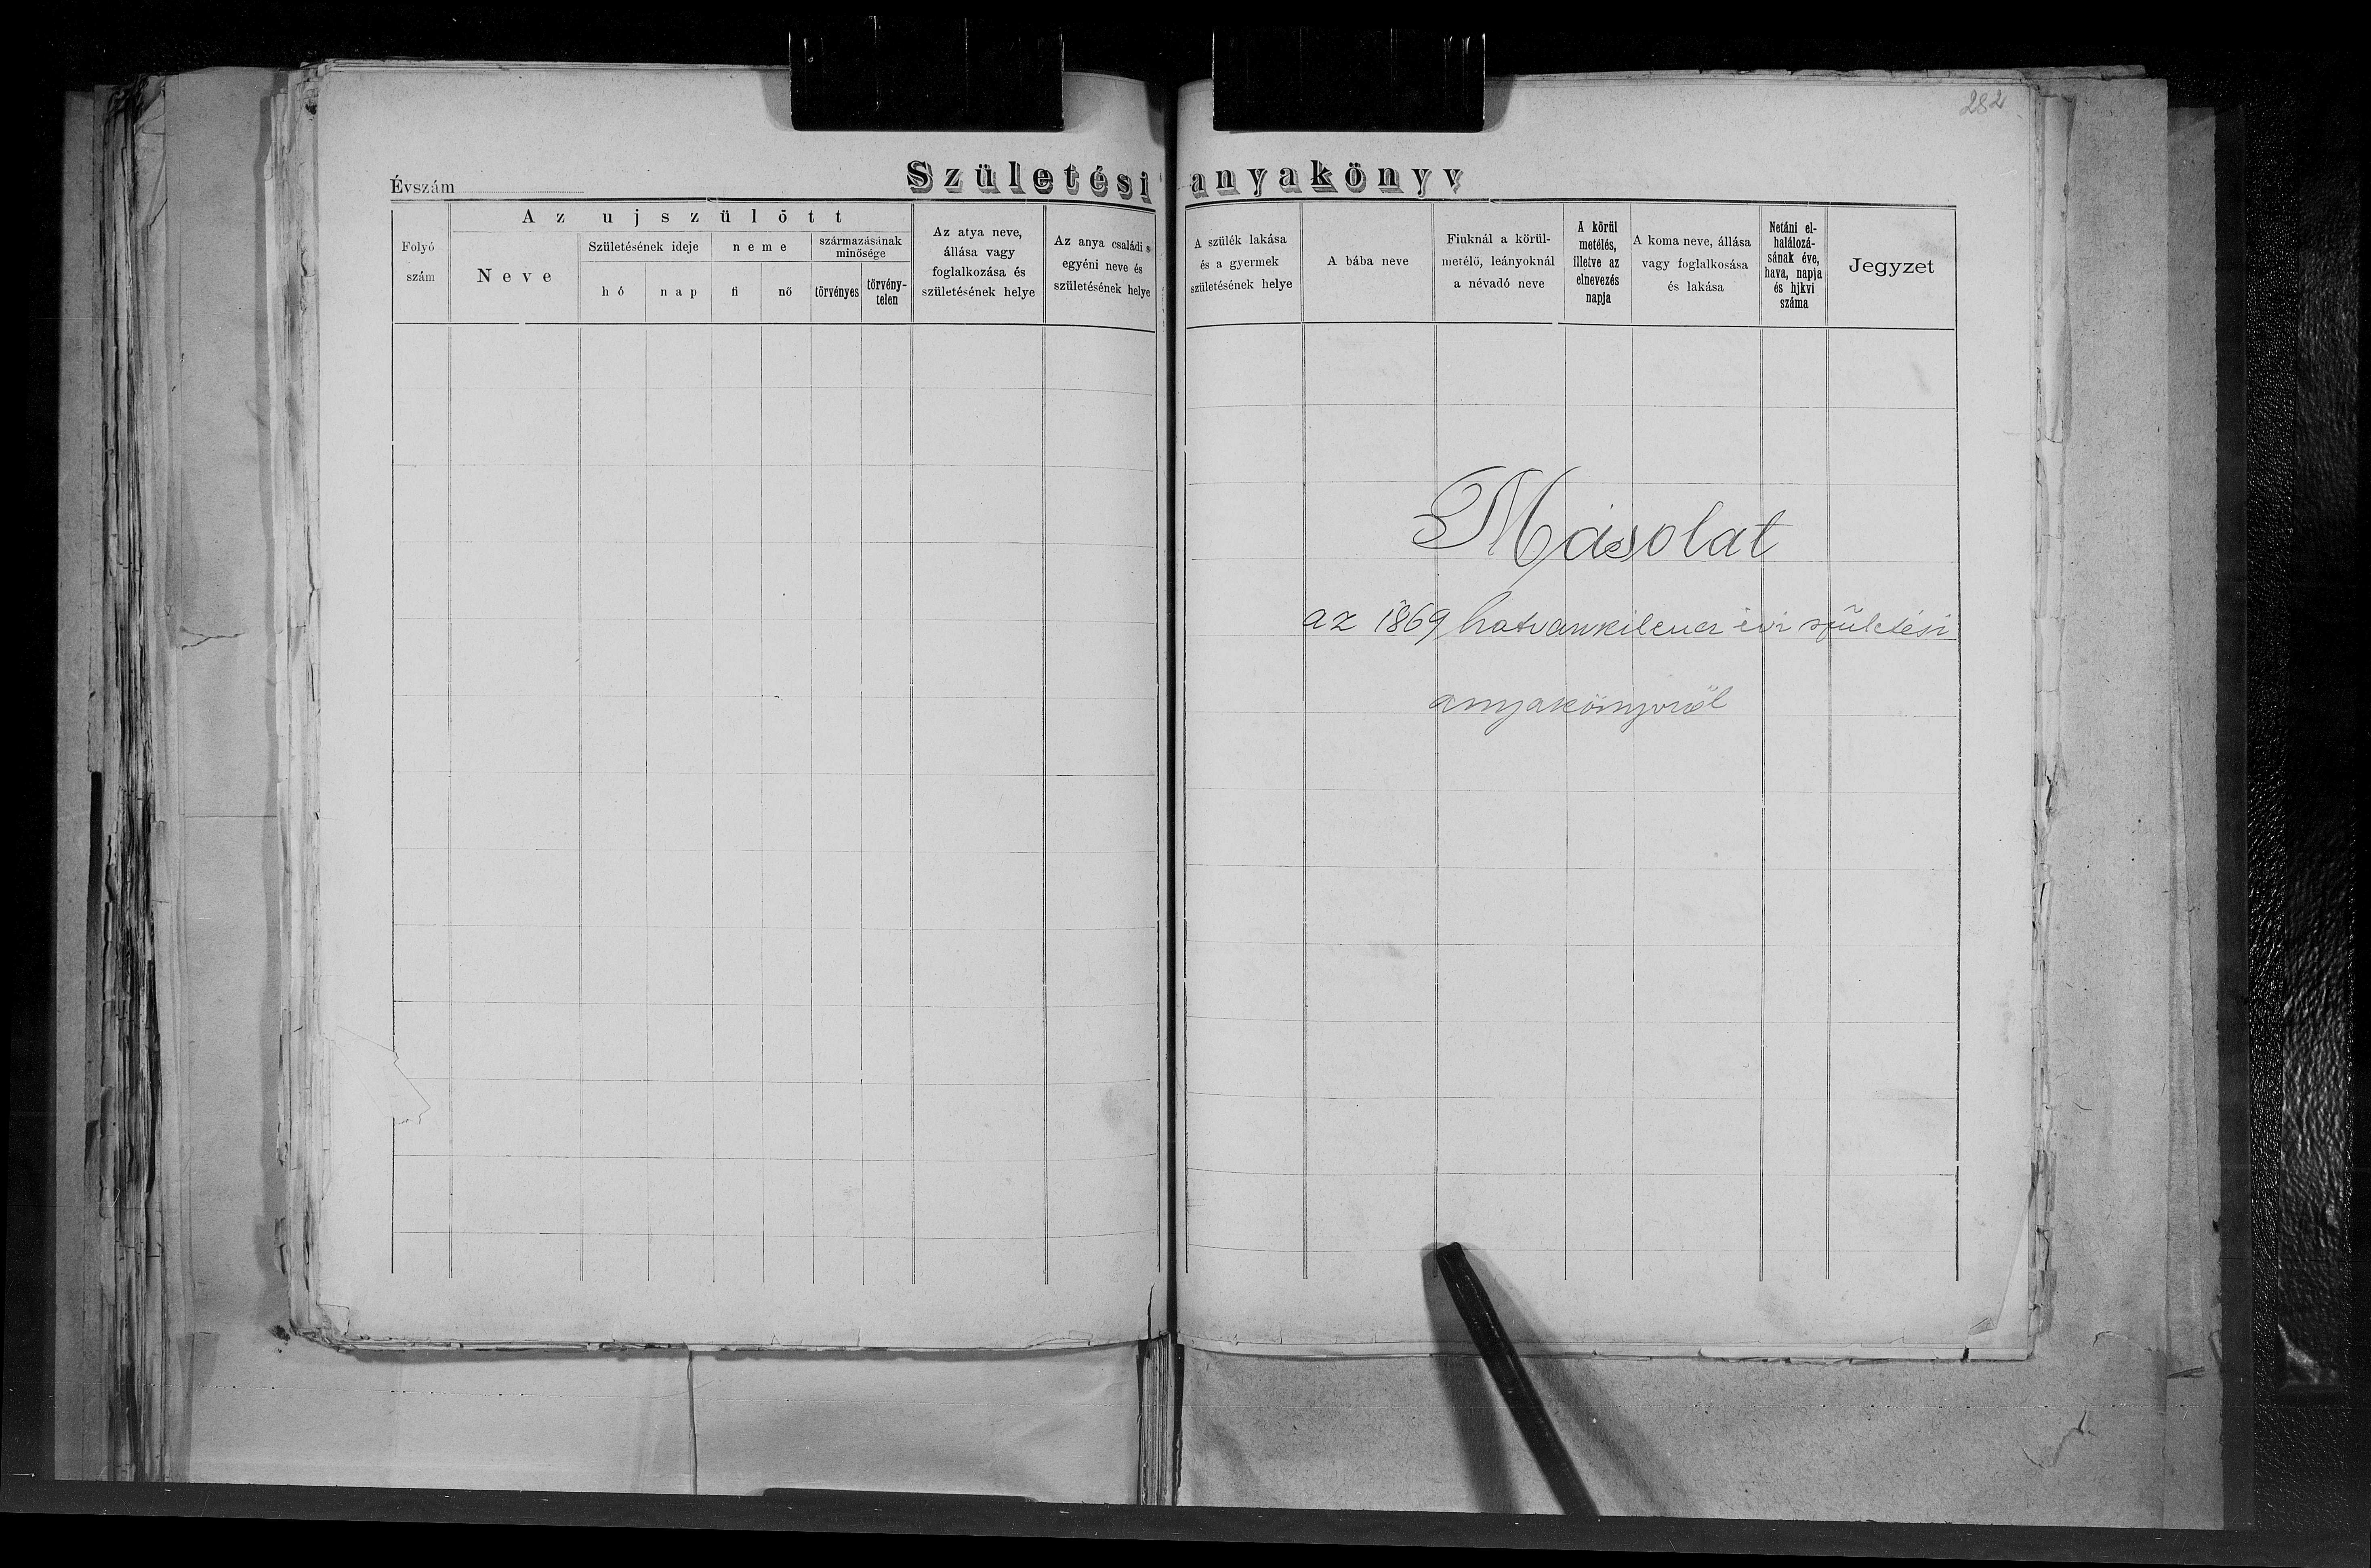 282
Születési anyakönyv
Évszám
Folyó szám
Az ujszülött
Neve
Születésének ideje
hó
nap
neme
fi
nő
származásának minősége
törvényes
törvény-
telen
Az atya neve,
állása vagy
foglalkozása és
születésének helye
Az anya családi s
egyéni neve és
születésének helye
A szülék lakása
és a gyermek
születésének helye
A bába neve
Fiuknál a körül-
metélő, leányoknál
a névadó neve
A körül
metélés,
illetve az
elnevezés
napja
A koma neve, állása
vagy foglalkosása
és lakása
Netáni el-
halálozá-
sának éve,
hava, napja
és hjkvi
száma
Jegyzet
Másolat
az 1869 hatvankilencz évi születési
anyakönyvről